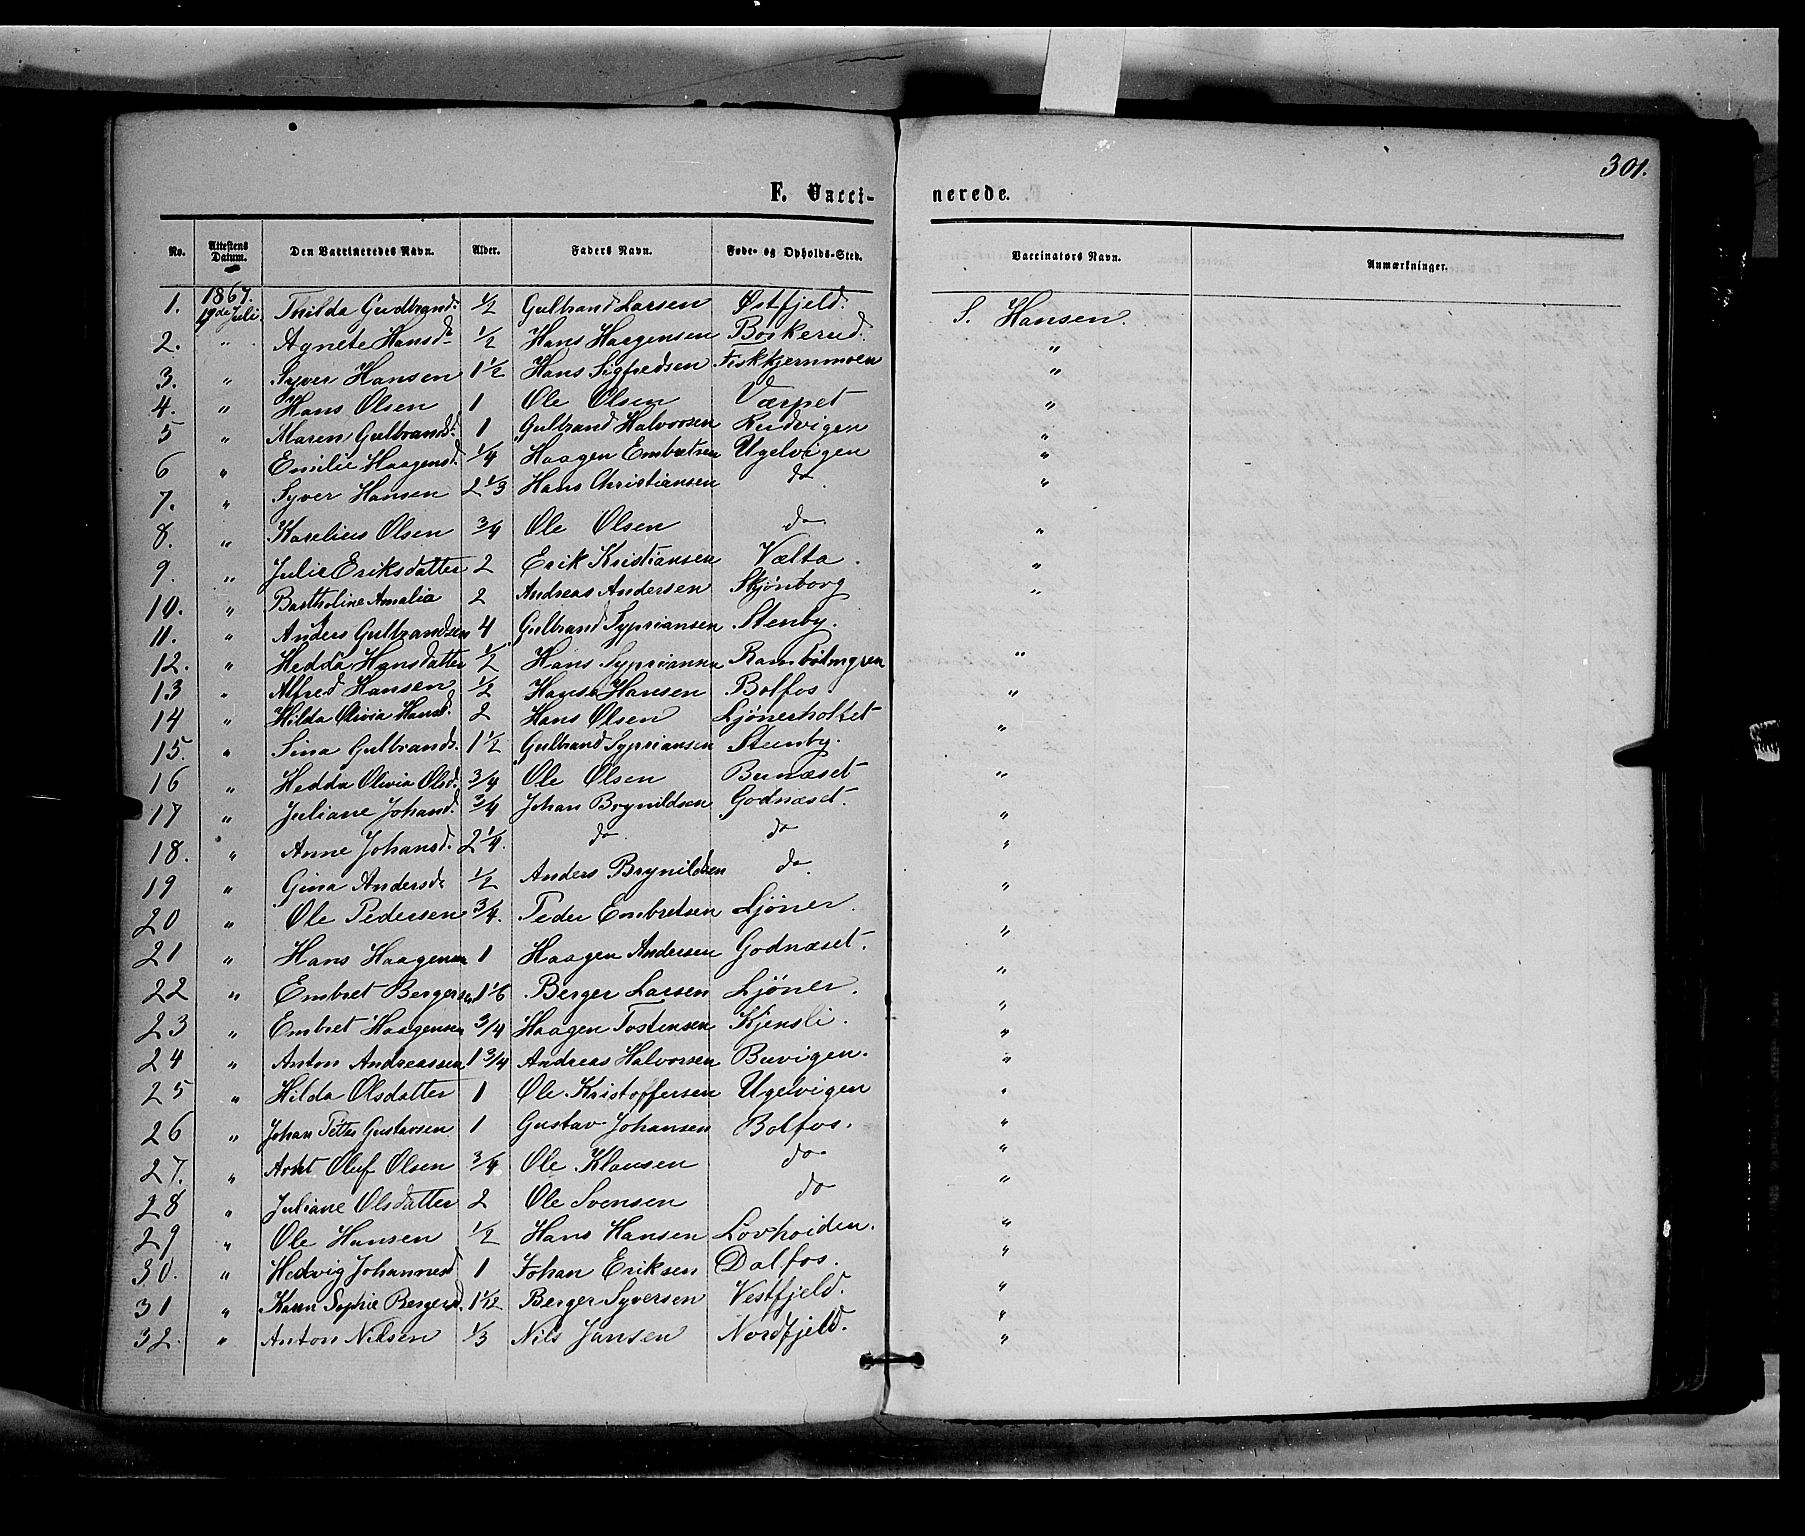 301.
F. Vacci- nerede.
No. Attestens Datum. Den Vaccineredes Navn. Alder. Faders Navn. Føde- og Opholds-Sted. Vaccinators Navn. Anmærkninger.
1867.
1. 19de Juli. Thilda Gudbrand. 1/2 Gulbrand Larsen Østfjeld. S. Hansen.
2. " Agnete Hansd. 1/2 Hans Haagensen Boskerud. "
3. " Syver Hansen 1 1/2 Hans Sigfredsen Fiskkjernmoen "
4. " Hans Olsen 1 Ole Olsen Værpet "
5 " Maren Gulbrandsd. 1 Gulbrand Halvorsen Rudvigen "
6 " Emilie Haagensd. 1/4 Haagen Embretsen Ugelvigen "
7. " Syver Hansen 2 1/3 Hans Christiansen do "
8. " Karelius Olsen 3/4 Ole Olsen do "
9. " Julie Eriksdatter 2 Erik Kristiansen Vælta. "
10. " Bartholine Amalia 2 Andreas Andersen Skjønborg "
11. " Anders Gulbrandsen 4 Gulbrand Sypriansen Stenby. "
12. " Hedda Hansdatter 1/2 Hans Syprianen "
13 " Alfred Hansen 1/2 Hans Hansen Bolfos. "
14 " Hilda Olivia Hansd. 2 Hans Olsen Ljønerholtet "
15. " Sina Gulbrands. 1 1/2 Gulbrand Sypriansen Steenby. "
16 " Hedda Olivia Olsd. 3/4 Ole Olsen Bunæset "
17 " Juliane Johand. 3/4 Johan Brynildsen Godnæset. "
18. " Anne Johansd. 2 1/4. do do "
19 " Gina Andersd. 1/2 Anders Brynildsen do "
20 " Ole Pedersen 3/4. Peder Embretsen Ljøner. "
21 " Hans Haagensen 1 Haagen Andersen Godnæset. "
22 " Embret Bergersen 1 1/6 Berger Larsen Ljøner. "
23 " Embret Haagensen 3/4 Haagen Tostensen Kjensli. "
24 " Anton Andreassen 1 3/4 Andreas Halvorsen Buvigen. "
25 " Hilda Olsdatter 1 Ole Kristoffersen Ugelvigen "
26 " Johan Petter Gustavsen 1 Gustav Johansen Bolfos. "
27. " Arnt Oluf Olsen 3/4 Ole Klausen do "
28 " Juliane Olsdatter 2 Ole Svensen do "
29 " Ole Hansen 1/2 Hans Hansen Løvhøiden. "
30. " Hedvig Johannesd 1 Johan Eriksen Dalfos. "
31 " Karen Sophie Bergersd. 1 1/12 Berger Syversen Vestfjeld. "
32. " Anton Nilsen 1/3 Nils Jansen Nordfjeld. "